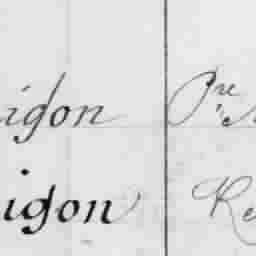 igon P.re
igon Re